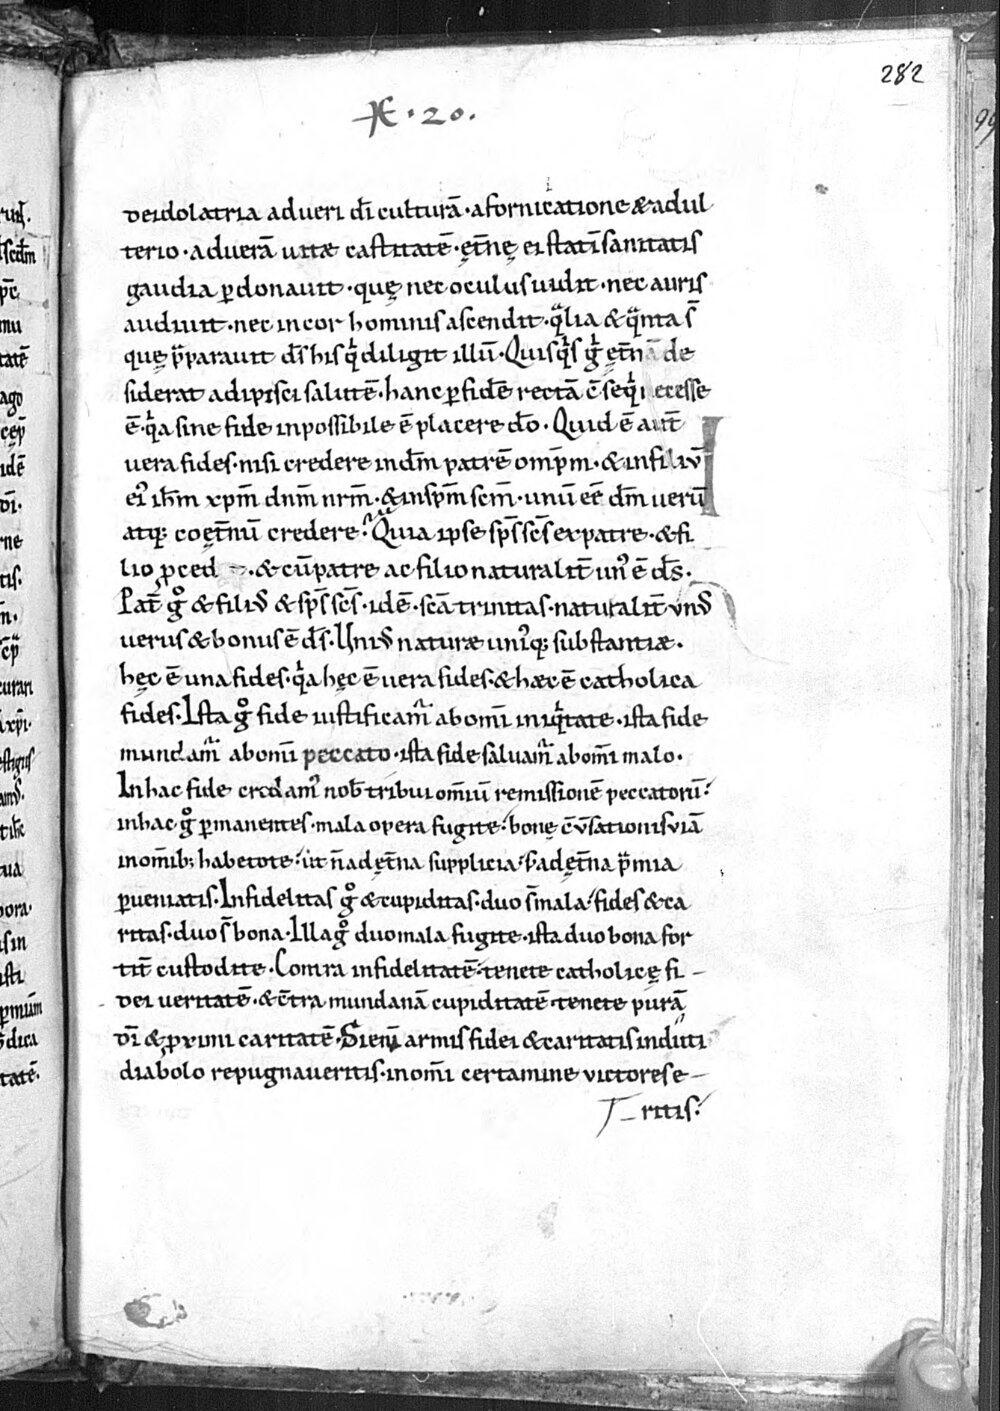 282
H̵ . 20 .
de idolatria ad ueri dī culturā · a fornicatione & adul
terio · ad uerā uitæ castitatē · et̄nę ei stati sanitatis
gaudia ꝑdonauit · quę nec oculus uidit · nec auris
audiuit · nec in cor hominis ascendit · qͣlia & qͣnta s̄
quę p̄parauit ds̄ his qͥ diligit illū · Quisqͥs gͥ et̄nā de
siderat adipisci salutē · hanc ꝑ fidē rectā ē seqͥ necesse
ē · qͥa sine fide inpossibile ē placere dō · Quid ē aut̄
uera fides · nisi credere in dm̄ patrē omp̄m · & in filiū
eiꝰ ihm̄ xpm̄ dnm̄ nrm̄ · & in spm̄ scm̄ · unū eē dm̄ uerū
atq; coęt̄nū credere · Quia ipse sps̄ scs̄ ex patre · & fi
lio ꝓced · & cū patre ac filio naturalit̄ unꝰ ē ds̄ ·
Pat̄ gͦ & filiꝰ & sps̄ scs̄ · idē · scā trinitas · naturalit̄ unꝰ
uerus & bonus ē ds̄ · Uniꝰ naturæ uniꝰq; substantiæ ·
hęc ē una fides · qͥa hęc ē uera fides · & hæc ē catholica
fides · Ista gͦ fide iustificamͬ ab omī iniqͥtate · ista fide
mundamͬ ab omī peccato · ista fide saluamͬ ab omī malo ·
In hac fide credamꝰ nob̄ tribui omiū remissionē peccatorū ·
in hac gͦ ꝑmanentes · mala opera fugite · bonę c̄uersationis uiā
in omib; habetote · ut n̄ ad ęt̄na supplicia · s̄ ad ęt̄na p̄mia
ꝑueniatis · Infidelitas gͦ & cupiditas · duo s̄ mala · fides & ca
ritas · duo s̄ bona · Illa gͦ duo mala fugite · ista duo bona for
tit̄ custodite · Contra infidelitatē · tenete catholicę fi –
dei ueritatē · & c̄tra mundanā cupiditatē · tenete purā
dī & ꝓximi caritatē · Si eni armis fidei & caritatis induti
diabolo repugnaueritis · in omī certamine uictores e –
ritis ·